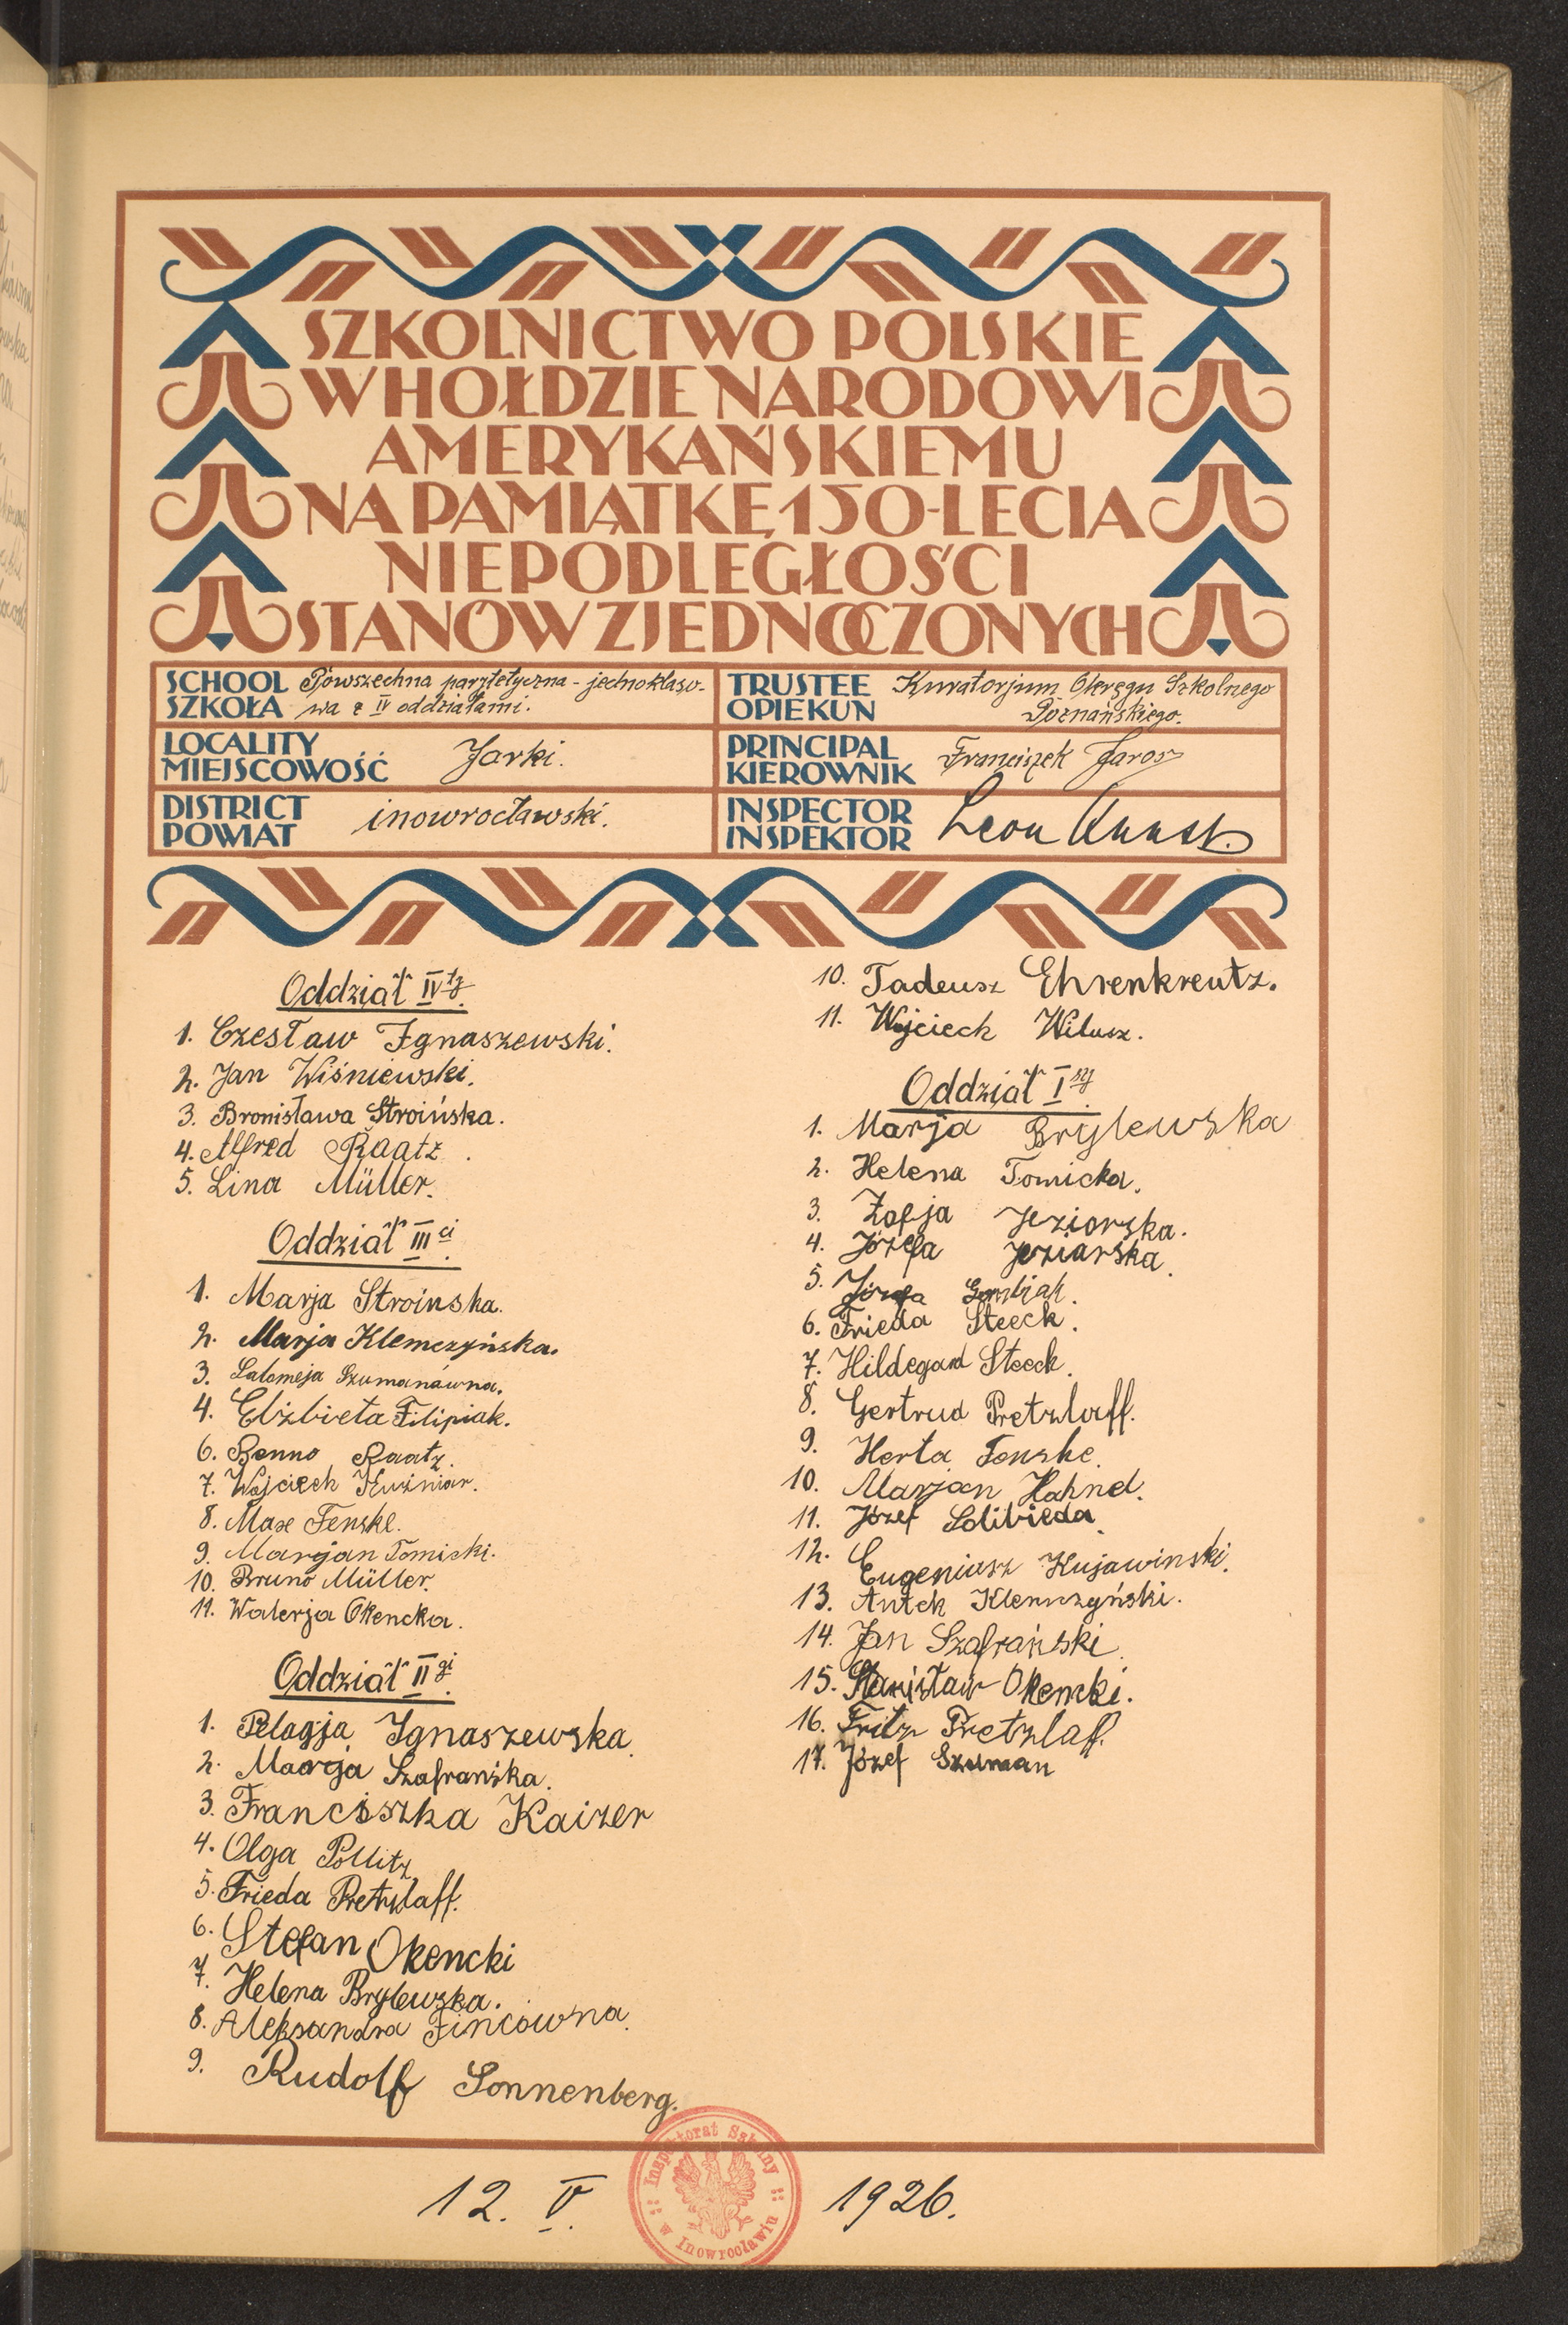 SZKOLNICTWO POLSKIE
W HOŁDZIE NARODOWI
AMERYKAŃSKIEMU
NA PAMIĄTKĘ 150-LECIA
NIEPODLEGŁOŚCI
STANÓW ZJEDNOCZONYCH
SCHOOL
SZKOŁA
Powszechna parytetyczna - jednoklaso-
wa z IV oddziałami.
TRUSTEE
OPIEKUN
Kuratorjum Okręgu Szkolnego
Poznańskiego.
LOCALITY
MIEJSCOWOŚĆ
Jarki.
PRINCIPAL
KIEROWNIK
Franciszek Jaros
DISTRICT
POWIAT
inowrocławski.
INSPECTOR
INSPEKTOR
Leon Kunst.
Oddział IVty.
1. Czesław Ignaszewski.
2. Jan Wiśniewski.
3. Bronisława Stroińska.
4. Alfred Raatz.
5. Lina Müller.
Oddział IIIci.
1. Marja Stroinska.
2. Marja Klemczyńska.
3. Salomeja Szumanówna.
4. Elżbieta Filipiak.
6. Benno Raatz.
7. Wojciech Kuźniar.
8. Max Fenske.
9. Marjan Tomicki.
10. Bruno Müller.
11. Walerja Okencka.
Oddział IIgi.
1. Pelagja Ignaszewska.
2. Marja Szafrańska.
3. Franciszka Kaizer
4. Olga Pollitz
5. Frieda Pretzlaff.
6. Stefan Okencki
7. Helena Brylewska.
8. Aleksandra Fincówna.
9. Rudolf Sonnenberg.
10. Tadeusz Ehrenkreutz.
11. Wojciech Witusz.
Oddział Iszy
1. Marja Brylewska
2. Helena Tomicka.
3. Zofja Jeziorska.
4. Józefa Jeziorska.
5. Józefa
6. Frieda Steeck.
7. Hildegard Steeck.
8. Gertrud Pretzlaff.
9. Herta Fenske.
10. Marjan Hahnel.
11. Józef Solibieda.
12. Eugeniusz Kujawinski.
13. Antek Klemczyński.
14. Jan Szafrański.
15. Stanisław Okencki.
16. Fritz Pretzlaff.
17. Józef Szuman
12. V. 1926.
Inspektorat Szkolny
w Inowrocławiu